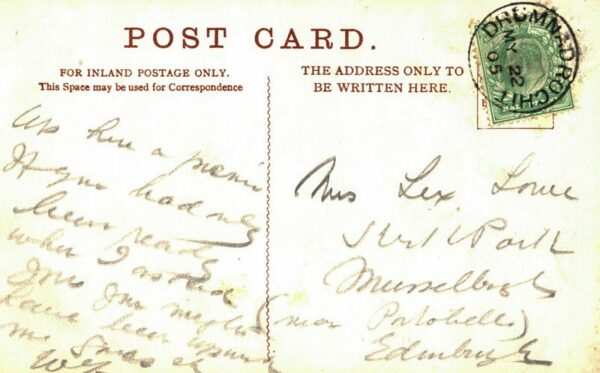 POST CARD.
FOR INLAND POSTAGE ONLY.
This Space may be used for Correspondence
THE ADDRESS ONLY TO
BE WRITTEN HERE.
DRUMNADROCHIT
MY 22
05
up here a picnic
If you had only
been ready
when I
you might
have been
me
Mrs Lex Lowe
Park
Musselburgh
(near Portobello)
Edinburgh